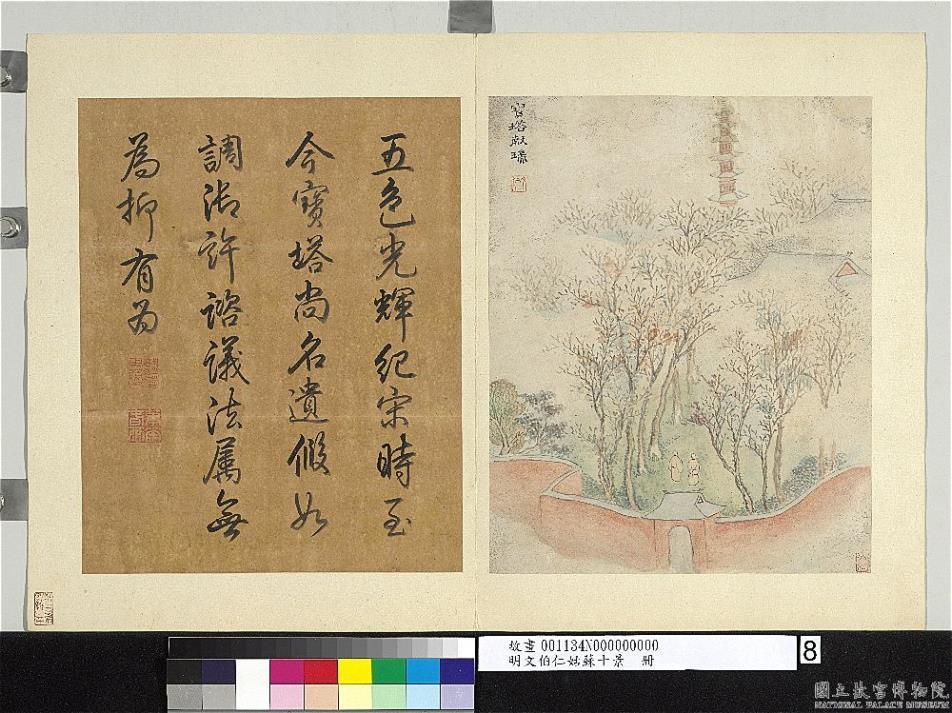 五色光輝紀宋時至
今寶塔尚名遺假如
調御許諮議法屬無
為抑有为
寶塔献瑞
故畫 001134N000000000
明文伯仁姑蘇十景 冊
8
國立故宮博物院
NATIONAL PALACE MUSEUM